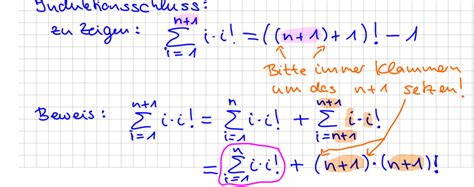 Induktionsschluss:
zu zeigen: $\sum_{i=1}^{n+1} i \cdot i! = ((n+1)+1)! - 1$
Bitte immer Klammern
um das n+1 setzen!
Beweis: $\sum_{i=1}^{n+1} i \cdot i! = \sum_{i=1}^{n} i \cdot i! + \sum_{i=n+1}^{n+1} i \cdot i!$
$= \sum_{i=1}^{n} i \cdot i! + (n+1) \cdot (n+1)!$